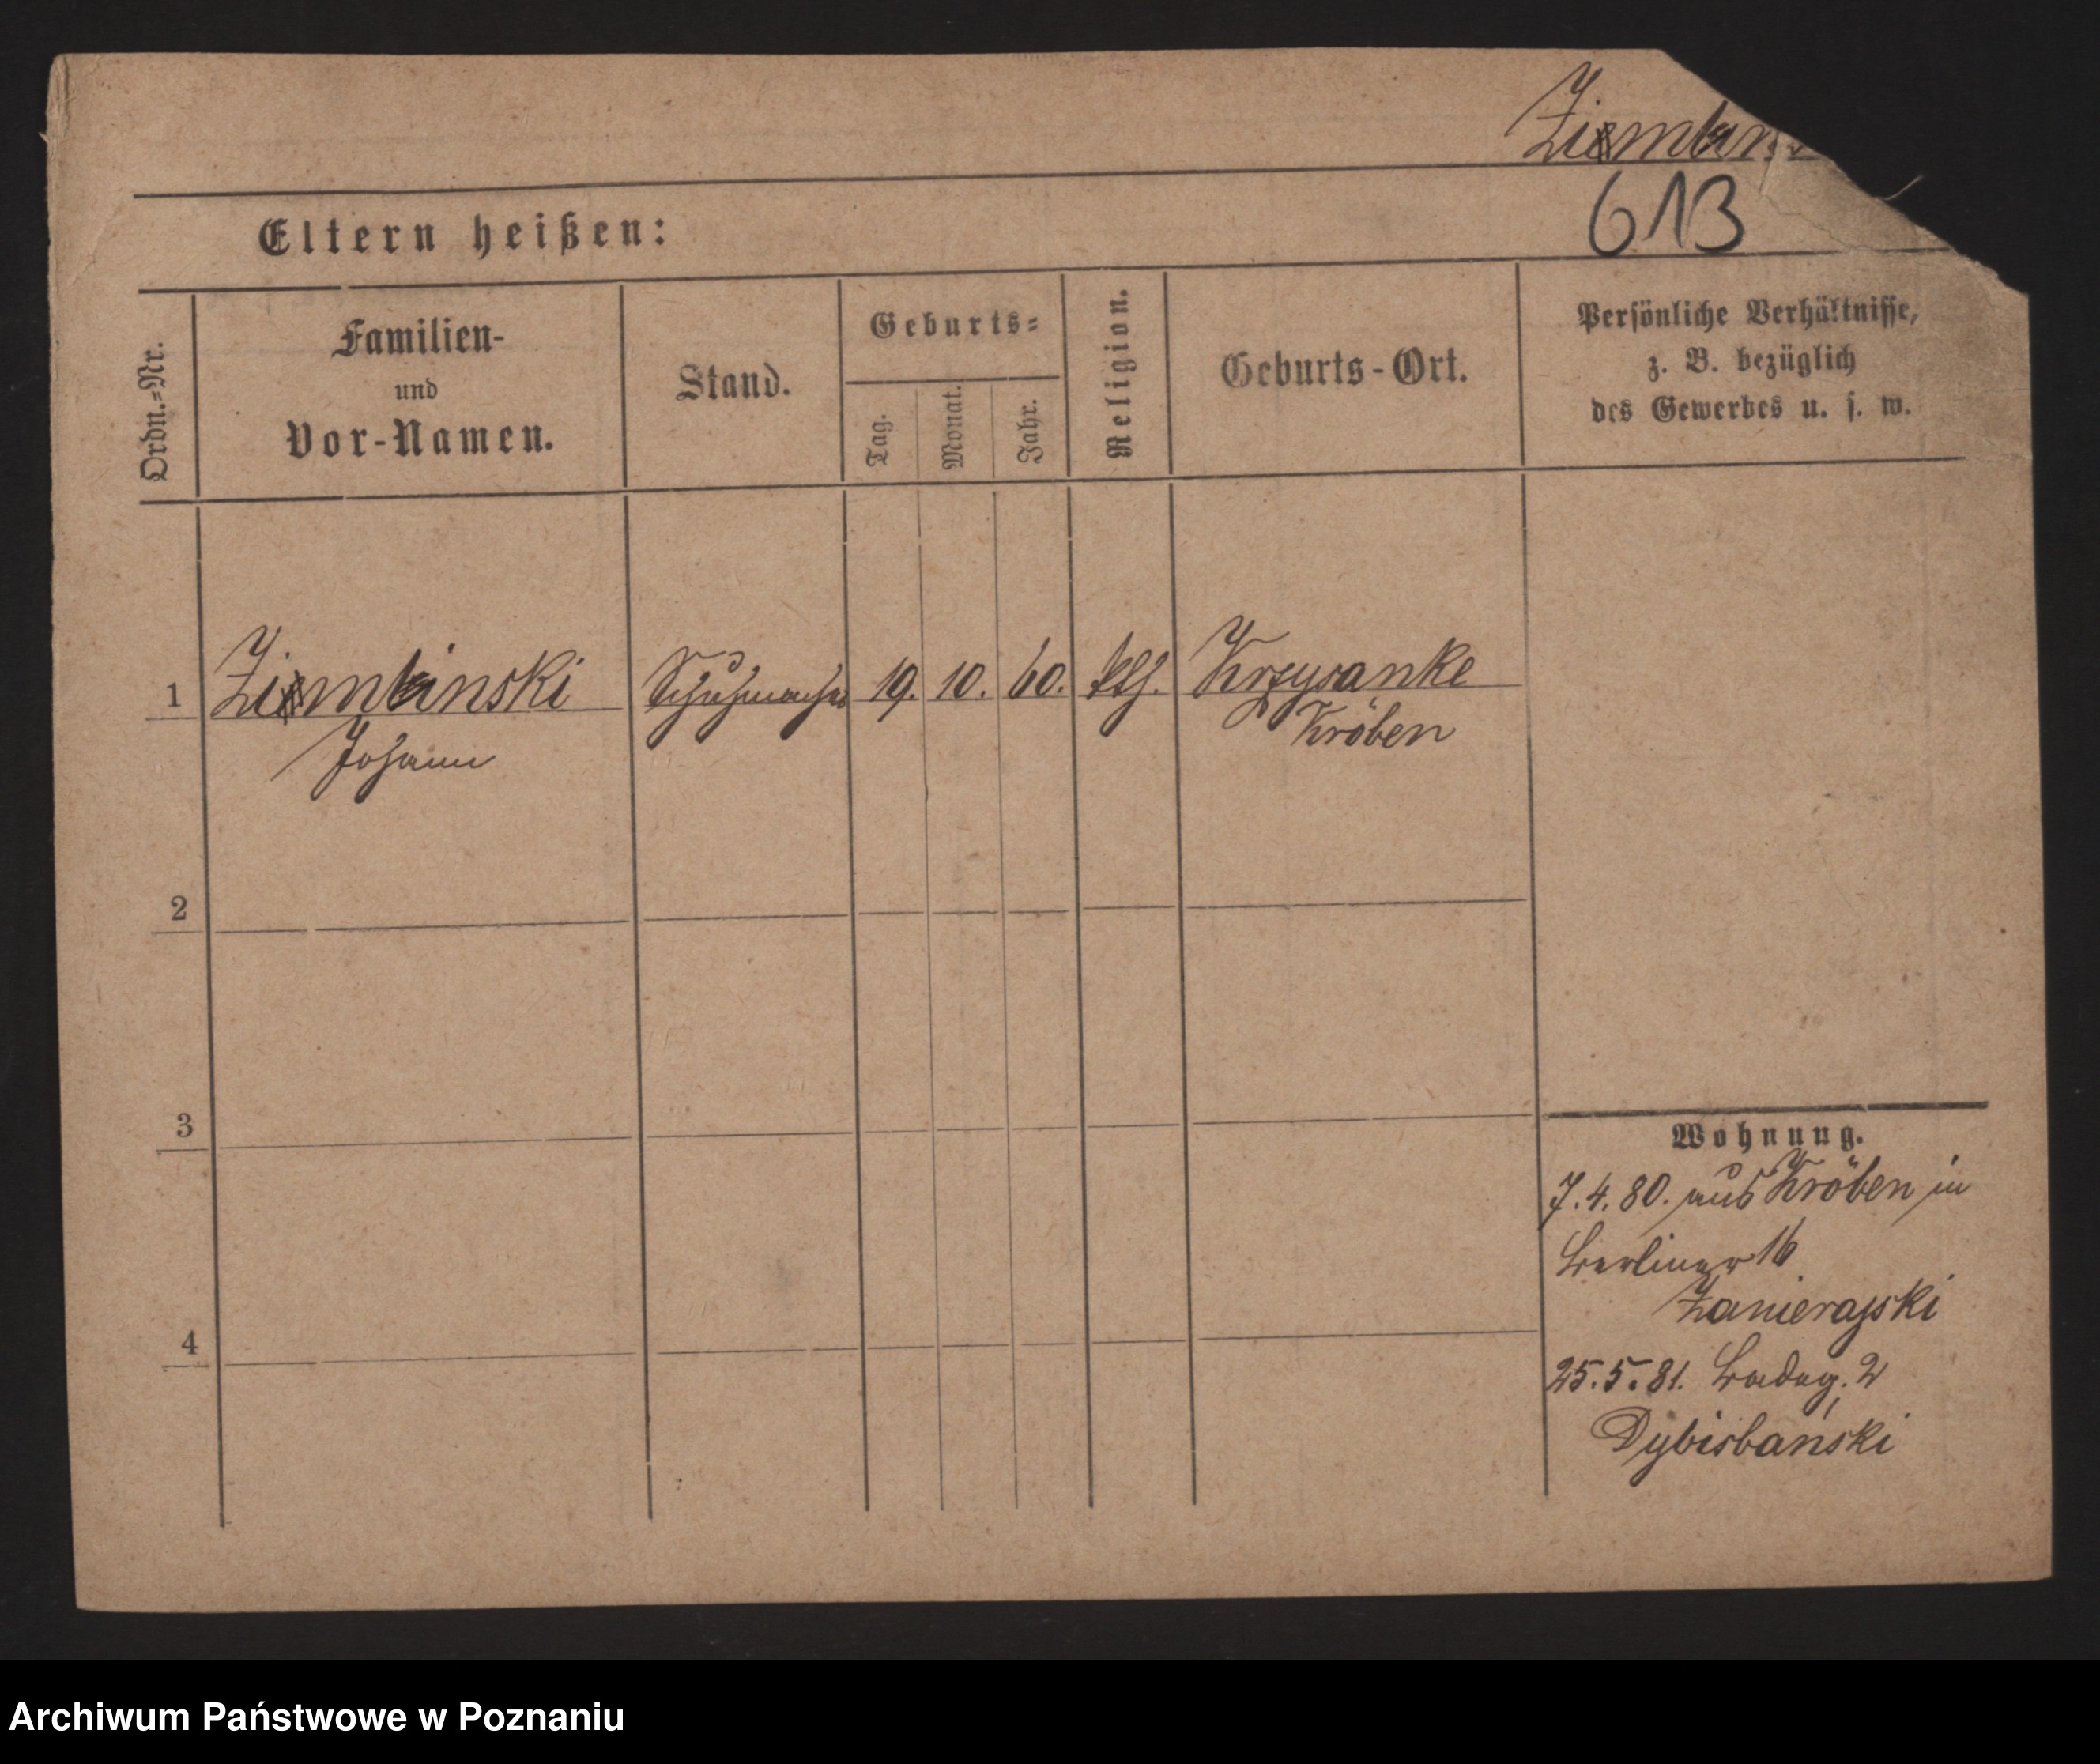 613
Eltern heißen:
Ordn.-Nr.
Familien-
und
Vor-Namen.
Stand.
Geburts-
Tag.
Monat.
Jahr.
Religion.
Geburts-Ort.
Persönliche Verhältnisse,
z. B. bezüglich
des Gewerbes u. s. w.
1 Schuhmacher 19. 10. 60. kth.
Johann Kröben
2
3
4
Wohnung.
7.4.80. aus Kröben in
Berliner 16
Zanierajski
25.5.81. 2
Dybisbański
Archiwum Państwowe w Poznaniu